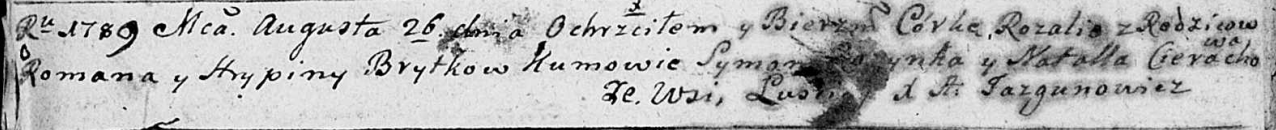 Ru 1789 Mca. Augusta 26 dnia Ochrzciłem y Bierzm Córkę Rozalię z Rodzicow
Romana y Hrypiny Brytkow Kumowie Symon y Natalla Cieracho
wa
Ze Wsi, X A: Jazgunowicz